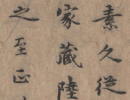 素久从
家藏陸
之至正